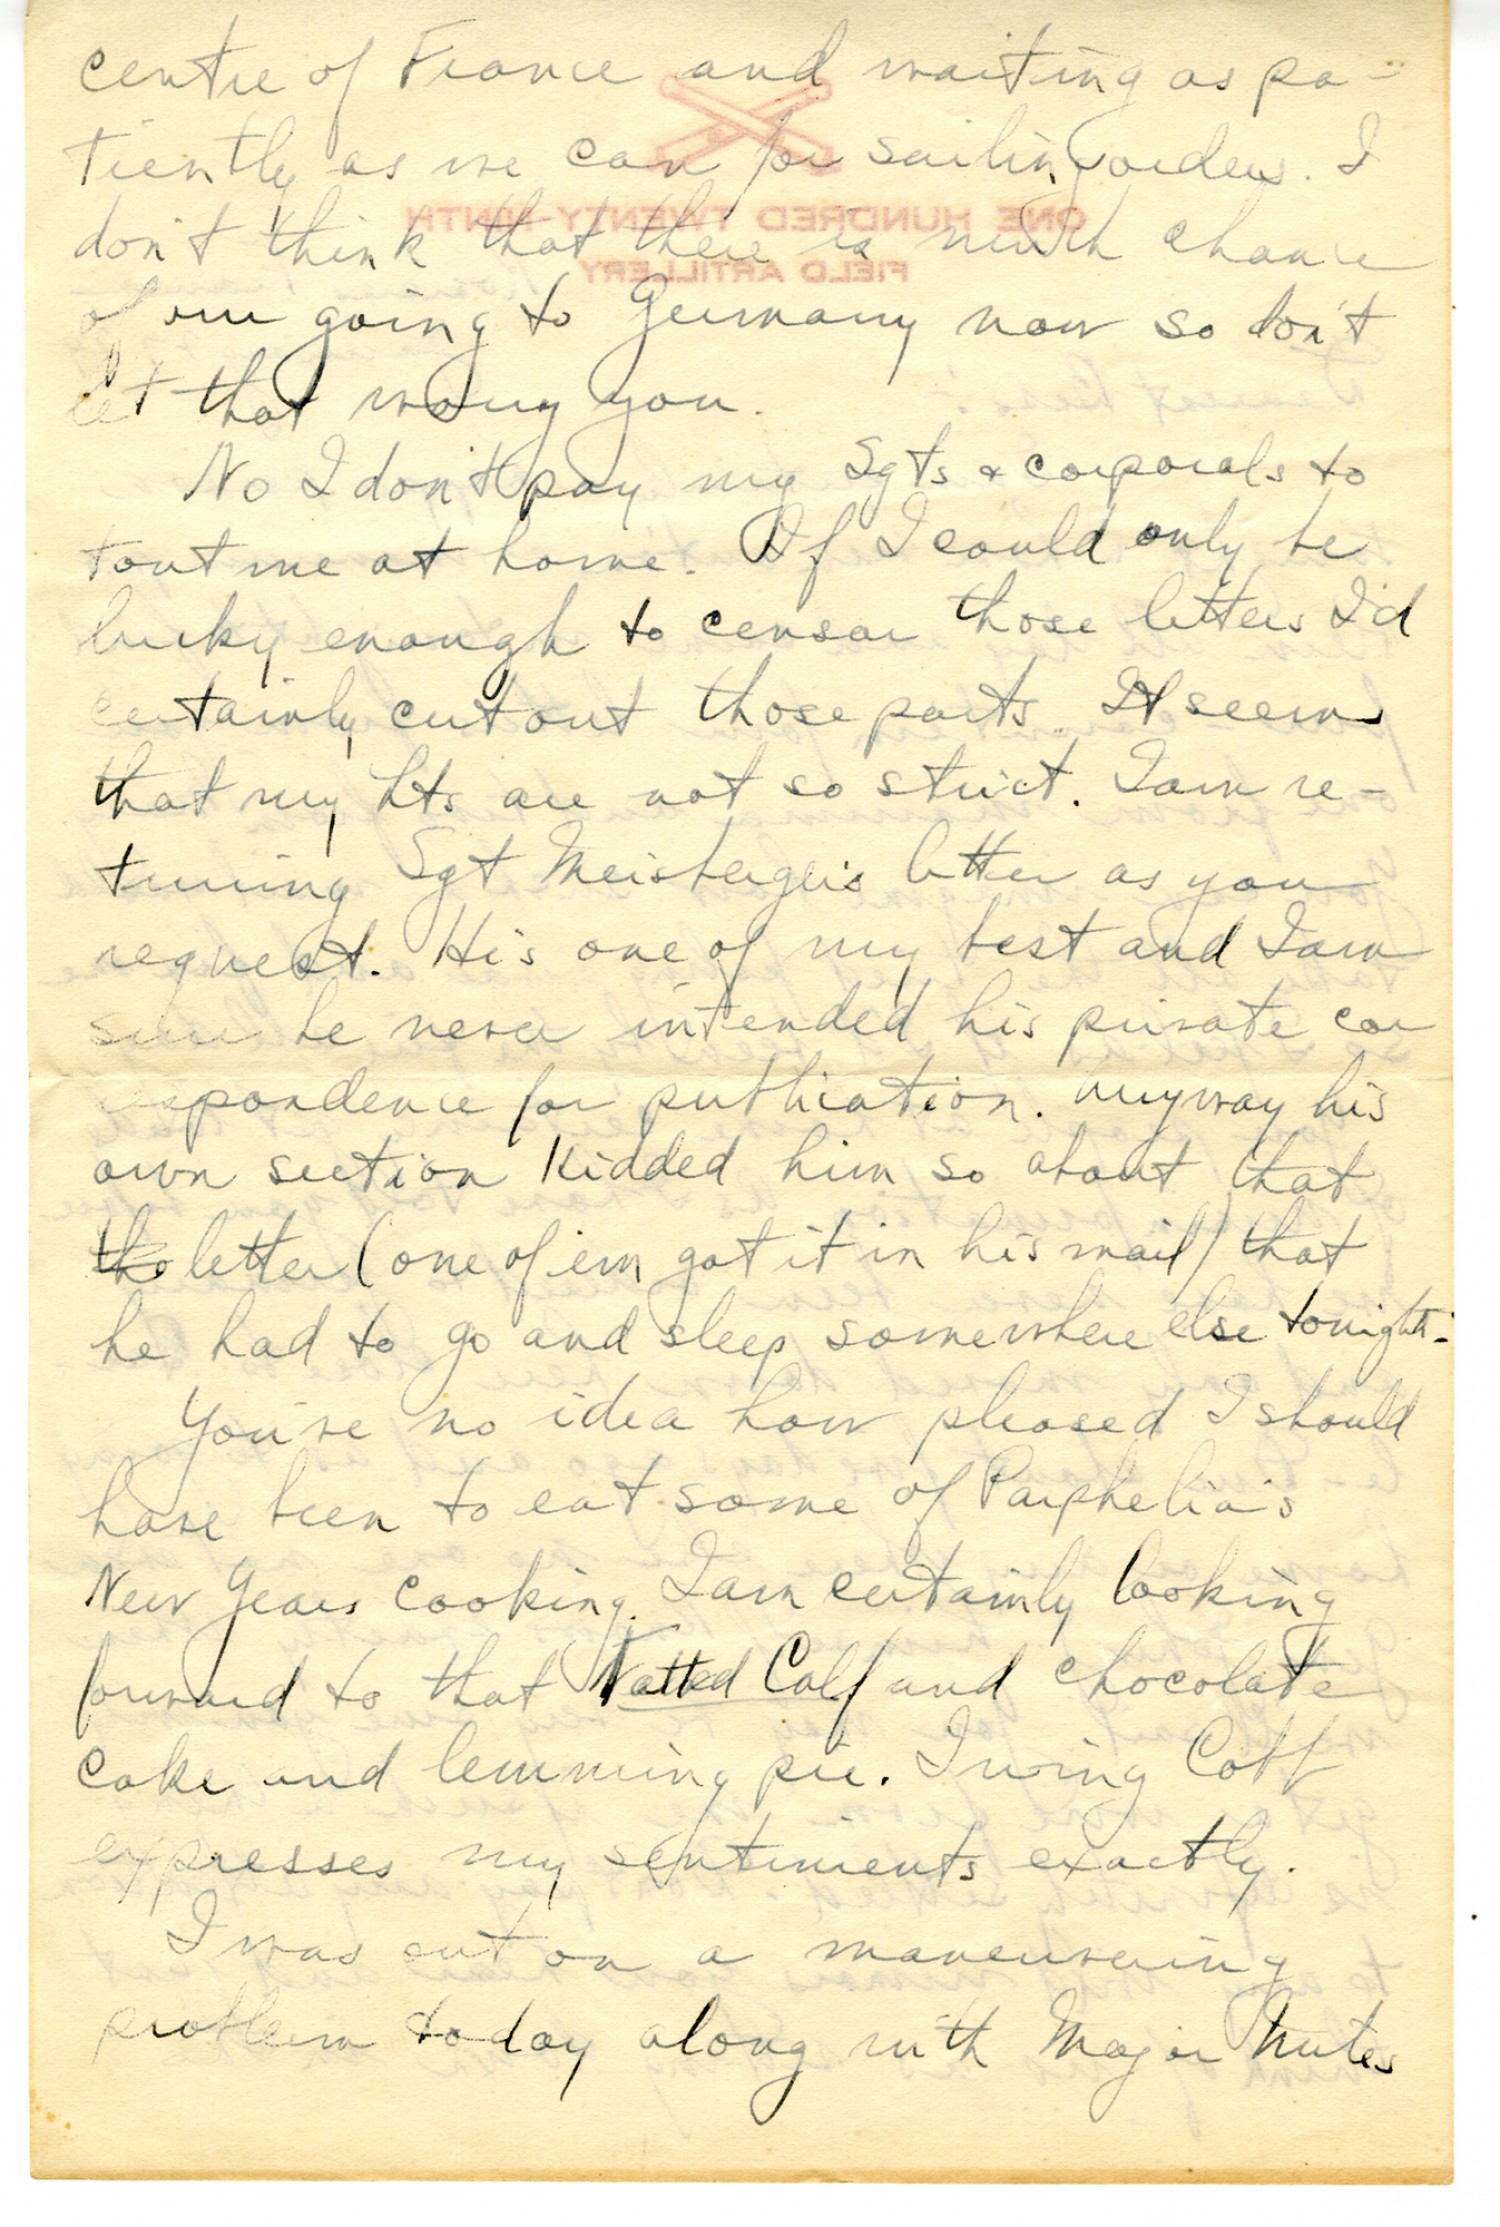 centre of France and waiting as pa-
tiently as we can for sailing orders. I
ONE HUNDRED TWENTY-NINTH
don't think that there is much chance
FIELD ARTILLERY
of our going to Germany now so don't
let that worry you.
No I don't pay my Sgts & corporals to
tout me at home. If I could only be
lucky enough to censor those letters I'd
certainly cut out those parts. It seems
that my Lts are not so strict. I am re-
turning Sgt Meisburger's letter as you
request. He's one of my best and I am
sure he never intended his private cor
respondence for publication. Anyway his
own section kidded him so about that
the letter (one of 'em got it in his mail) that
he had to go and sleep somewhere else tonight.
You've no idea how pleased I should
have been to eat some of Parphelia's
New Years cooking. I am certainly looking
forward to that Fatted Calf and chocolate
cake and lemming pie. Irving Cobb
expresses my sentiments exactly.
I was out on a maneuvering
problem today along with Major